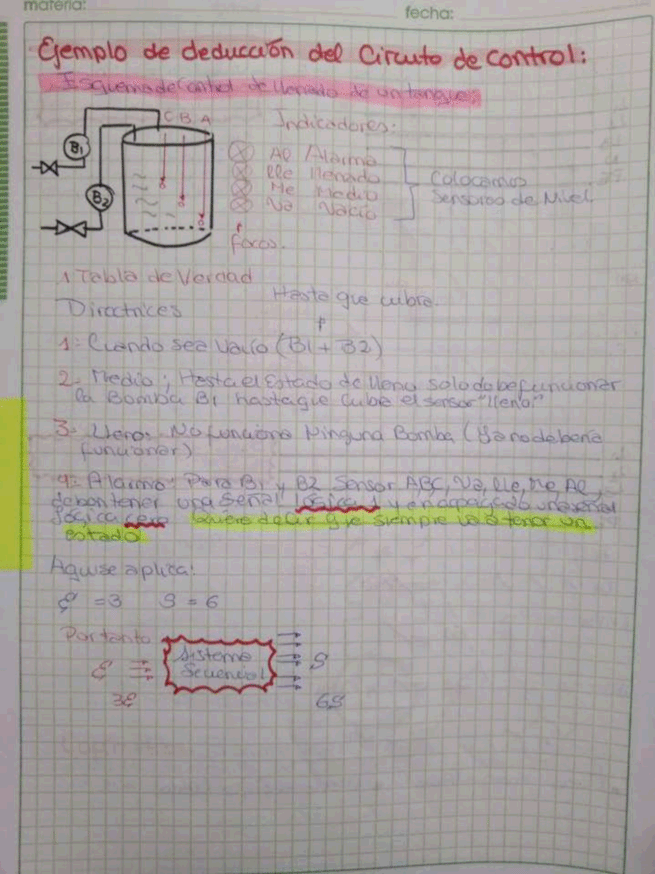 materia:
fecha:
Ejemplo de deducción del Circuito de control:
Esquema de Control de llenado de un tanque:
C B A
Indicadores:
B1
B2
Al /Alarma
lle llenado
Me Medio
Va Vacío
Colocamos
Sensores de Nivel
focos.
1 Tabla de Verdad
Hasta que cubra.
Directrices
1- Cuando sea Vacío (B1 + B2)
2- Medio; Hasta el Estado de lleno solo debe funcionar
la Bomba B1 hasta que cube el sensor "lleno"
3- lleno: No funciona Ninguna Bomba (Ya no debería
funcionar)
4- Alarma: Para B1 y B2 Sensor ABC, Va, lle, Me, Al,
deben tener una señal lógica 1 y en apagado una señal
lógica cero quiere decir que siempre va a tener un
estado
Aquí se aplica:
E = 3 S = 6
Por tanto
E
Sistema
Secuencial
S
3E
6S